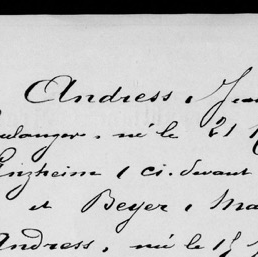 Andress, Jean
Boulanger, né le 21
Enzheim, ci-devant
et Beyer, Ma
Andress, née le 15